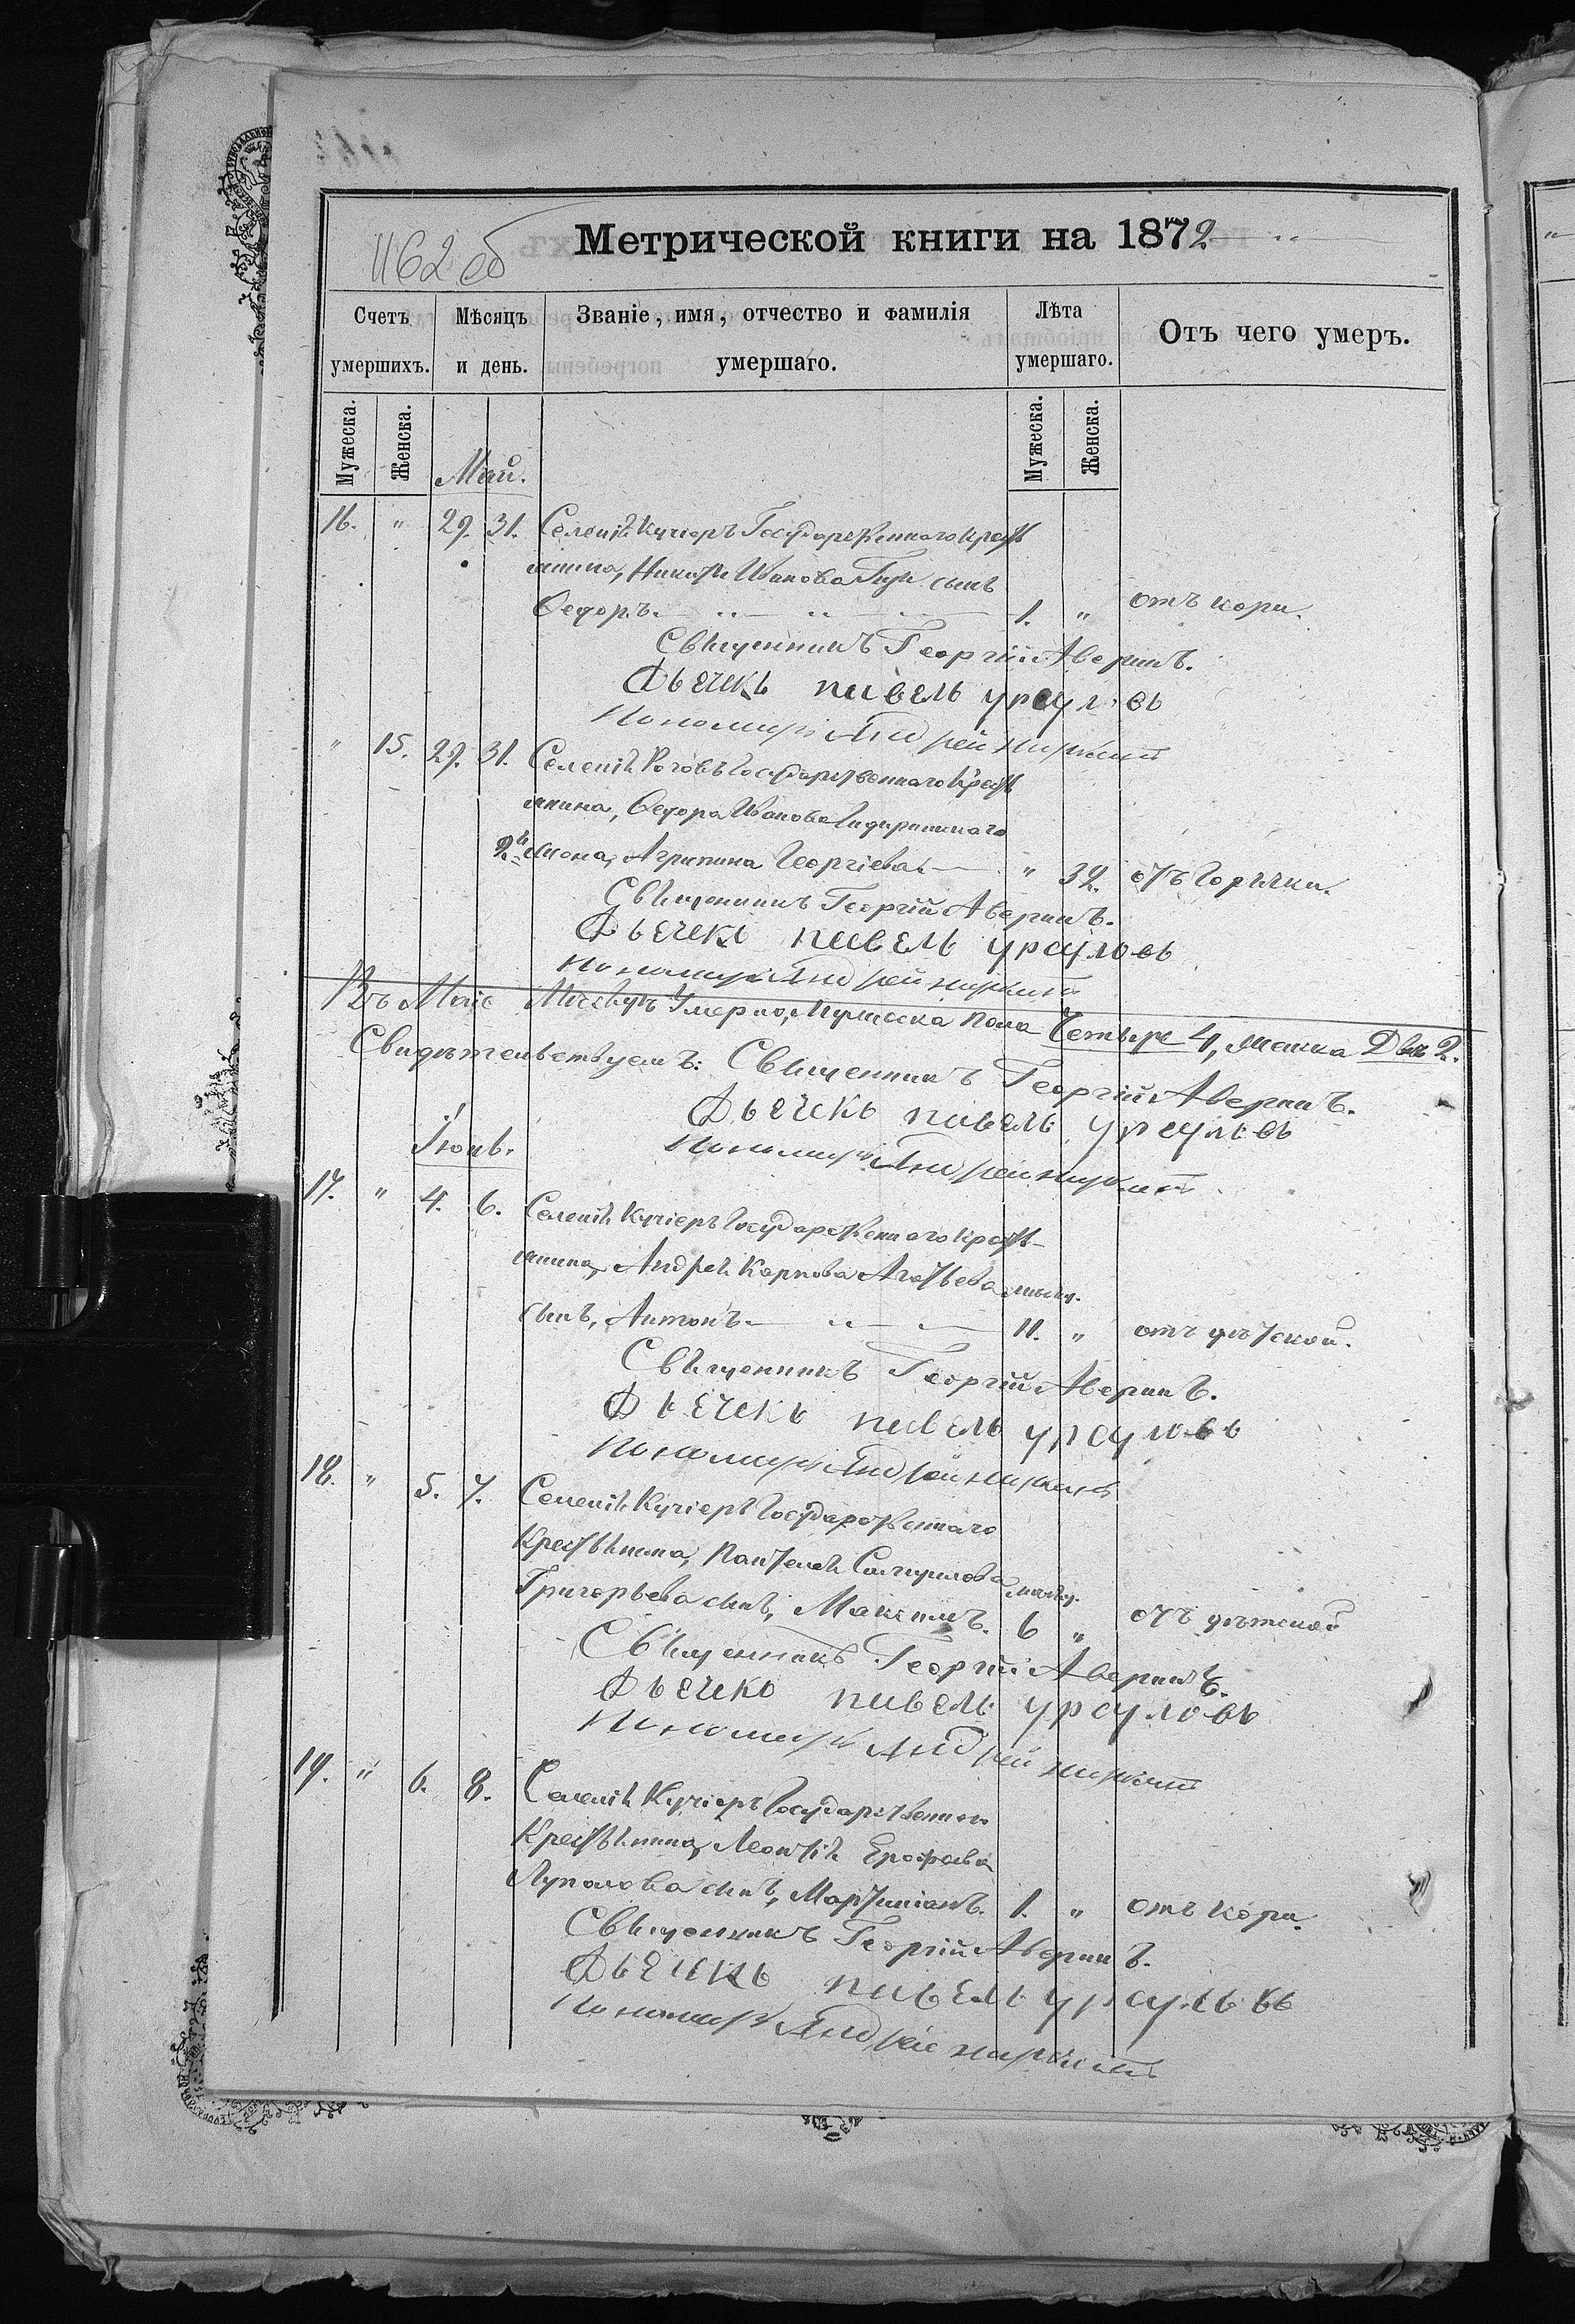 1162 об
Метрической книги на 1872
Счетъ умершихъ. Мѣсяцъ и день. Званіе, имя, отчество и фамилія умершаго. Лѣта умершаго. Отъ чего умеръ.
Мужеска. Женска. Мужеска. Женска.
Май.
16. " 29. 31. Селенія Кучіеръ Государственнаго Крестьянина, Никиты Иванова сынъ
Ѳедоръ. 1. " отъ кори.
Священникъ Георгій Аверинъ.
Дьячекъ павелъ урсуловъ
Пономарь Андрей
" 15. 29. 31. Селенія Роговъ Государственнаго Крестьянина, Ѳедора Иванова
жена, Агрипина Георгіева. " 32. отъ Горячки.
Священникъ Георгій Аверинъ.
Дьячекъ павелъ урсуловъ
пономарь Андрей
Въ Маѣ Мѣсяцѣ Умерло, Мужеска пола Четыре 4, женска Двѣ 2.
Свидѣтельствуемъ: Священникъ Георгій Аверинъ.
Дьячекъ павелъ урсуловъ
Пономарь Андрей
Іюнь.
17. " 4. 6. Селенія Кучіеръ Государственнаго Крестьянина, Андрея Карпова Агатьева мѣсяц.
сынъ, Антонъ 11. " отъ дѣтской.
Священникъ Георгій Аверинъ.
Дьячекъ павелъ урсуловъ
Пономарь Андрей
18. " 5. 7. Селенія Кучіеръ Государственнаго
Крестьянина, Пантелея мѣсяц.
Григорьева сынъ, Максимъ. 6 " отъ дѣтской
Священникъ Георгій Аверинъ.
Дьячекъ павелъ урсуловъ
Пономарь Андрей
19. " 6. 8. Селенія Кучіеръ Государственнаго
Крестьянина, Леонтія Ерофеева
Луполова сынъ, Мартиніанъ. 1. " отъ кори.
Священникъ Георгій Аверинъ.
Дьячекъ павелъ урсуловъ
Пономарь Андрей